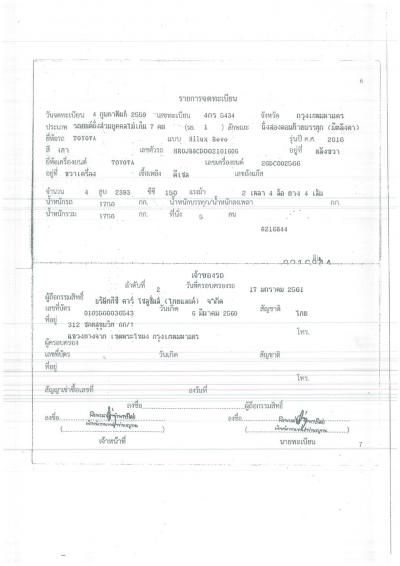 6
รายการจดทะเบียน
วันจดทะเบียน 4 กุมภาพันธ์ 2559 เลขทะเบียน 4กร 5434 จังหวัด กรุงเทพมหานคร
ประเภท รถยนต์นั่งส่วนบุคคลไม่เกิน 7 คน (รย. 1 ) ลักษณะ นั่งสองตอนท้ายบรรทุก
ยี่ห้อรถ TOYOTA แบบ Hilux Revo รุ่นปี ค.ศ 2016
สี เทา เลขตัวรถ อยู่ที่
ยี่ห้อเครื่องยนต์ TOYOTA เลขเครื่องยนต์ 2GDC002566
อยู่ที่ ขวาเครื่อง เชื้อเพลิง ดีเซล เลขถังแก๊ส
จำนวน 4 สูบ 2393 ซีซี 150 แรงม้า 2 เพลา 4 ล้อ ยาง 4 เส้น
น้ำหนักรถ 1750 กก. น้ำหนักบรรทุก/น้ำหนักลงเพลา กก.
น้ำหนักรวม 1750 กก. ที่นั่ง 5 คน
6216844
เจ้าของรถ
ลำดับที่ 2 วันที่ครอบครองรถ 17 มกราคม 2561
ผู้ถือกรรมสิทธิ์ จำกัด
เลขที่บัตร 0105560030543 วันเกิด 6 มีนาคม 2560 สัญชาติ ไทย
ที่อยู่ 312 ซอยสุขุมวิท โทร.
แขวงบางจาก เขตพระโขนง กรุงเทพมหานคร
ผู้ครอบครอง
เลขที่บัตร วันเกิด สัญชาติ
ที่อยู่
โทร.
สัญญาเช่าซื้อเลขที่ ลงวันที่
ลงชื่อ ผู้ถือกรรมสิทธิ์
ลงชื่อ ลงชื่อ
เจ้าหน้าที่ นายทะเบียน
7